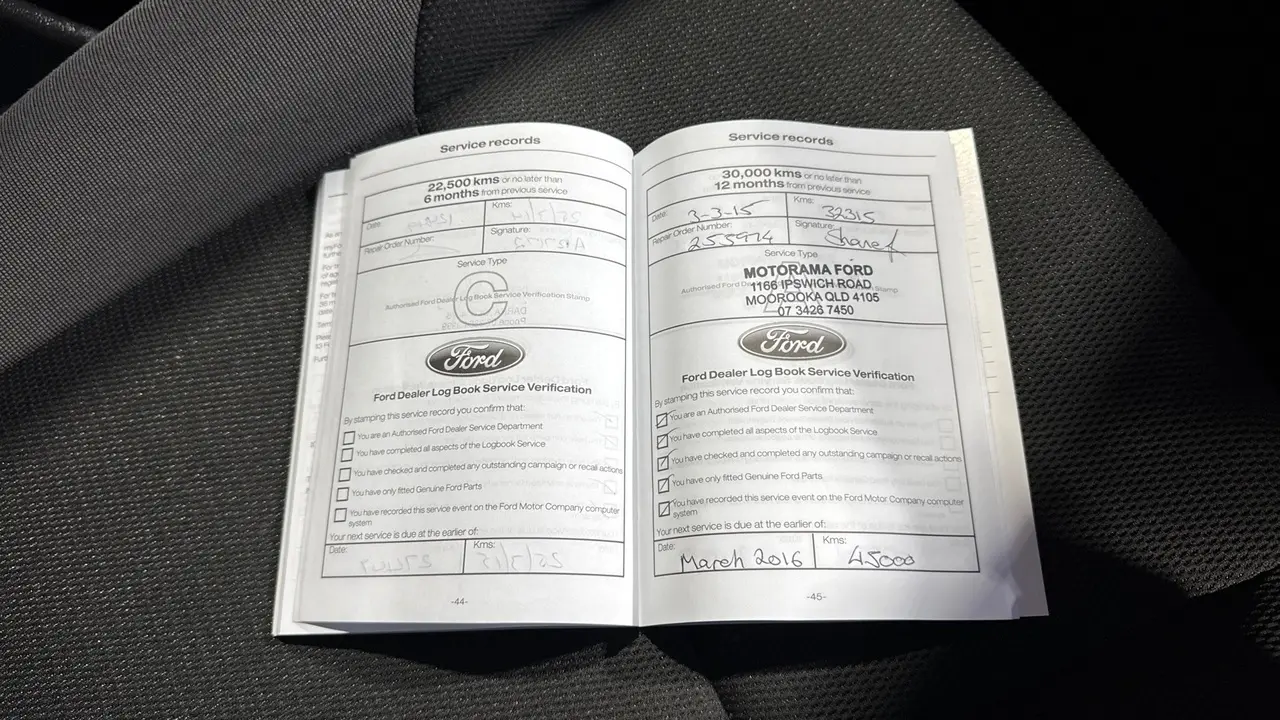 Service records
22,500 kms or no later than
6 months from previous service
Date:
Kms:
Repair Order Number:
Signature:
Service Type
C
Authorised Ford Dealer Log Book Service Verification Stamp
Ford
Ford Dealer Log Book Service Verification
By stamping this service record you confirm that:
You are an Authorised Ford Dealer Service Department
You have completed all aspects of the Logbook Service
You have checked and completed any outstanding campaign or recall actions
You have only fitted Genuine Ford Parts
You have recorded this service event on the Ford Motor Company computer
system
Your next service is due at the earlier of:
Date:
Kms:
-44-
Service records
30,000 kms or no later than
12 months from previous service
Date: 3-3-15
Kms: 32315
Repair Order Number: 255974
Signature: Shane
Service Type
MOTORAMA FORD
1166 IPSWICH ROAD
MOOROOKA QLD 4105
07 3426 7450
Authorised Ford Stamp
Ford
Ford Dealer Log Book Service Verification
By stamping this service record you confirm that:
You are an Authorised Ford Dealer Service Department
You have completed all aspects of the Logbook Service
You have checked and completed any outstanding campaign or recall actions
You have only fitted Genuine Ford Parts
You have recorded this service event on the Ford Motor Company computer
system
Your next service is due at the earlier of:
Date: March 2016
Kms: 45000
-45-